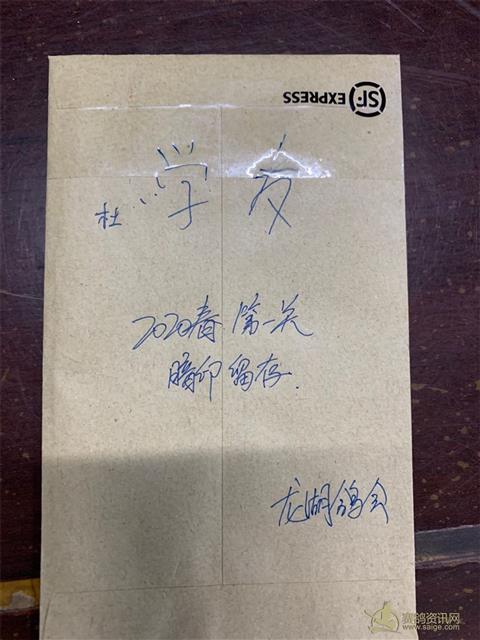 SF EXPRESS
学友
杜
2020春 第一关
暗印留存.
龙湖鸽会
赛鸽资讯网
www.saige.com